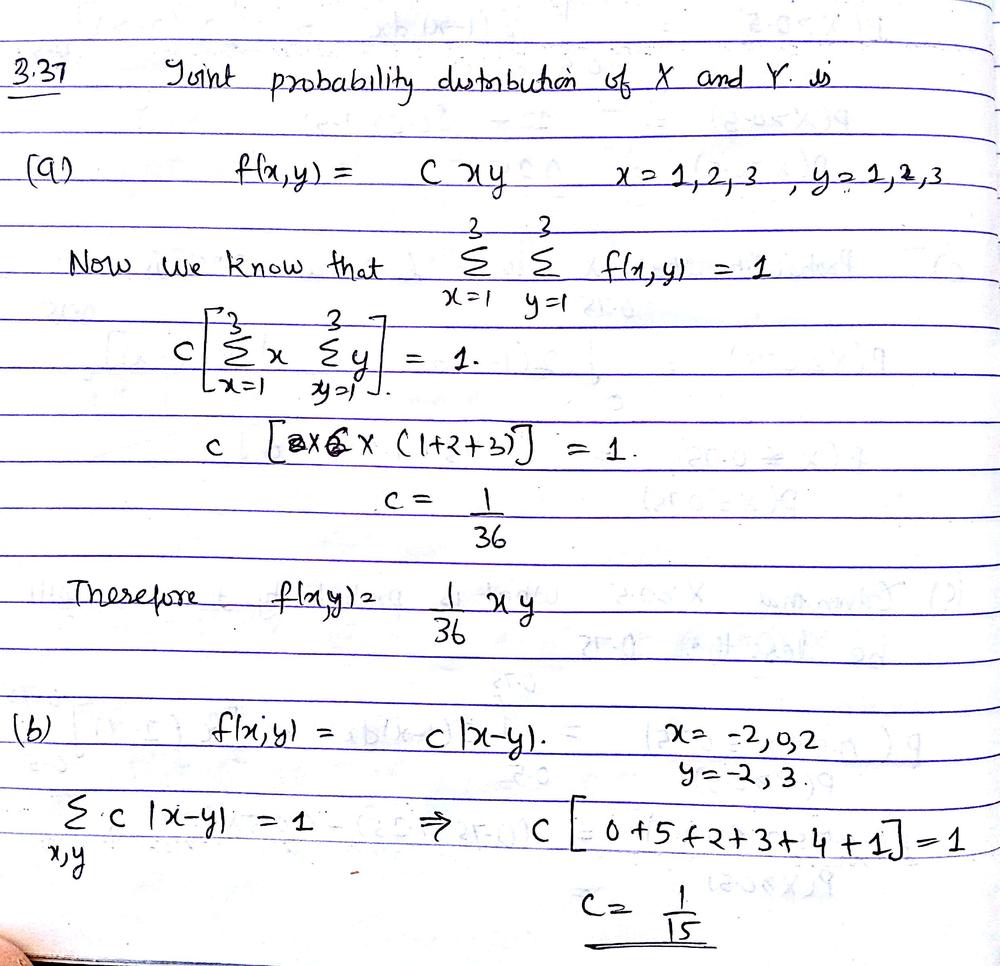 3.37 Joint probability distribution of X and Y. is
(a) f(x,y) = C xy x = 1,2,3 , y = 1,2,3
Now we know that 3Σx=1 3Σy=1 f(x,y) = 1
C [ 3Σx=1 x 3Σy=1 y ] = 1.
c [ x (1+2+3)] = 1.
c = 1/36
Therefore f(x,y) = 1/36 xy
(b) f(x,y) = c |x-y|. x = -2,0,2
y = -2, 3.
Σx,y c |x-y| = 1 ⇒ C [ 0+5+2+3+4+1] = 1
C = 1/15